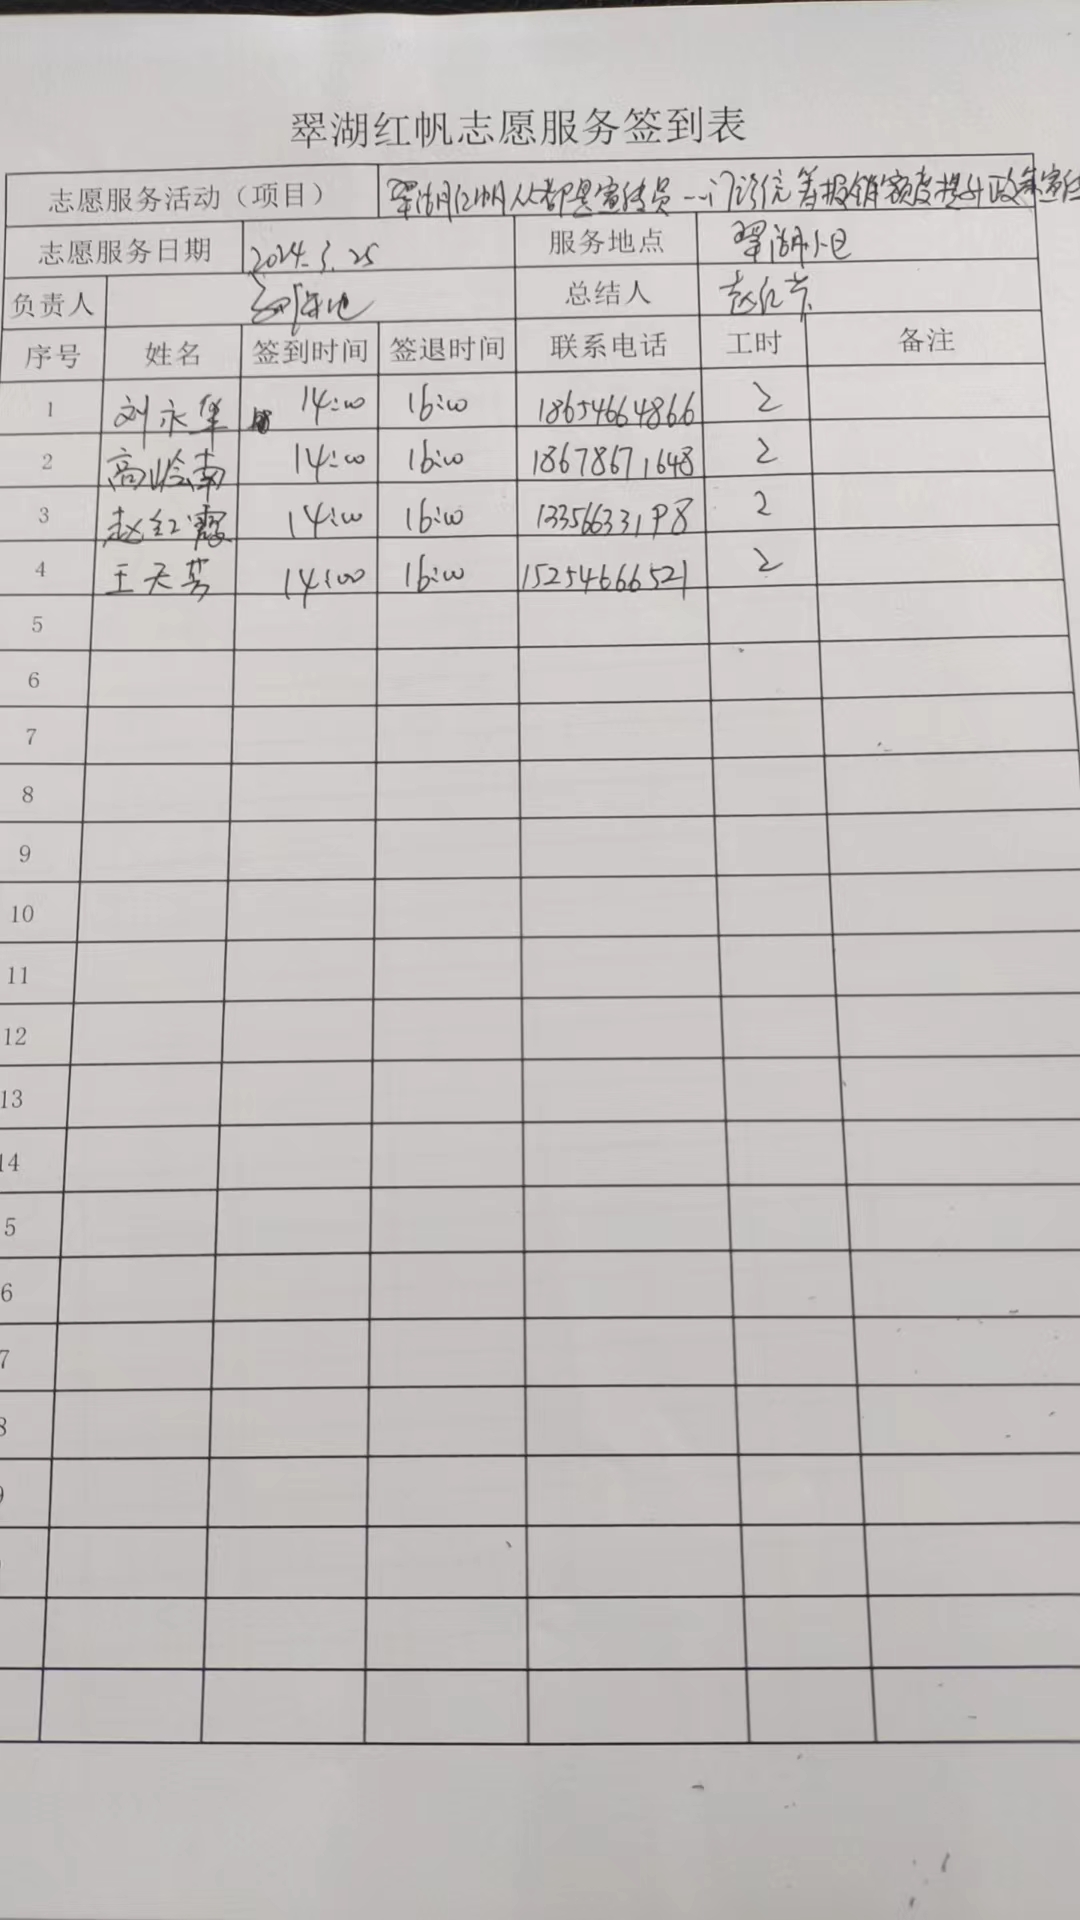 翠湖红帆志愿服务签到表
志愿服务活动（项目） 翠湖红帆人人都是宣传员---门诊统筹报销额度提升政策宣传
志愿服务日期 2024.3.25 服务地点 翠湖小区
负责人 总结人 赵红芹
序号 姓名 签到时间 签退时间 联系电话 工时 备注
1 刘永华 14:00 16:00 18654664866 2
2 高岭南 14:00 16:00 18678671648 2
3 赵红霞 14:00 16:00 13356633198 2
4 王天芳 14:00 16:00 15254666521 2
5
6
7
8
9
10
11
12
13
14
5
6
7
8
9